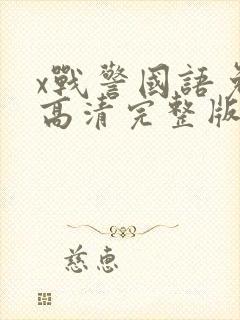 x戰警國語免
高清完整版
慈惠